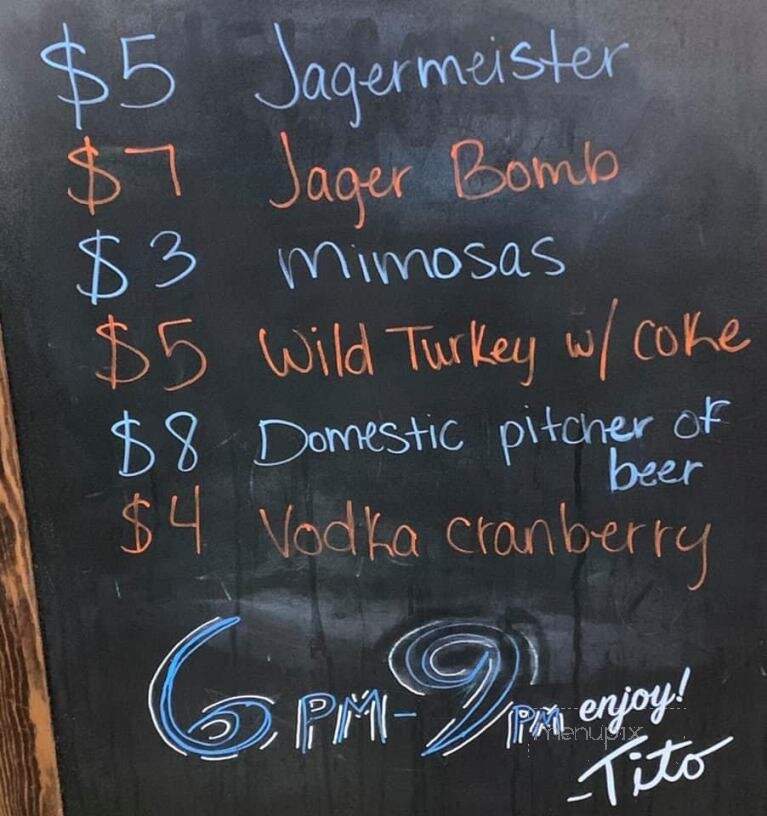 $5 Jagermeister
$7 Jager Bomb
$3 mimosas
$5 Wild Turkey w/ coke
$8 Domestic pitcher of
beer
$4 Vodka cranberry
6PM-9PM enjoy!
menupix
-Tito